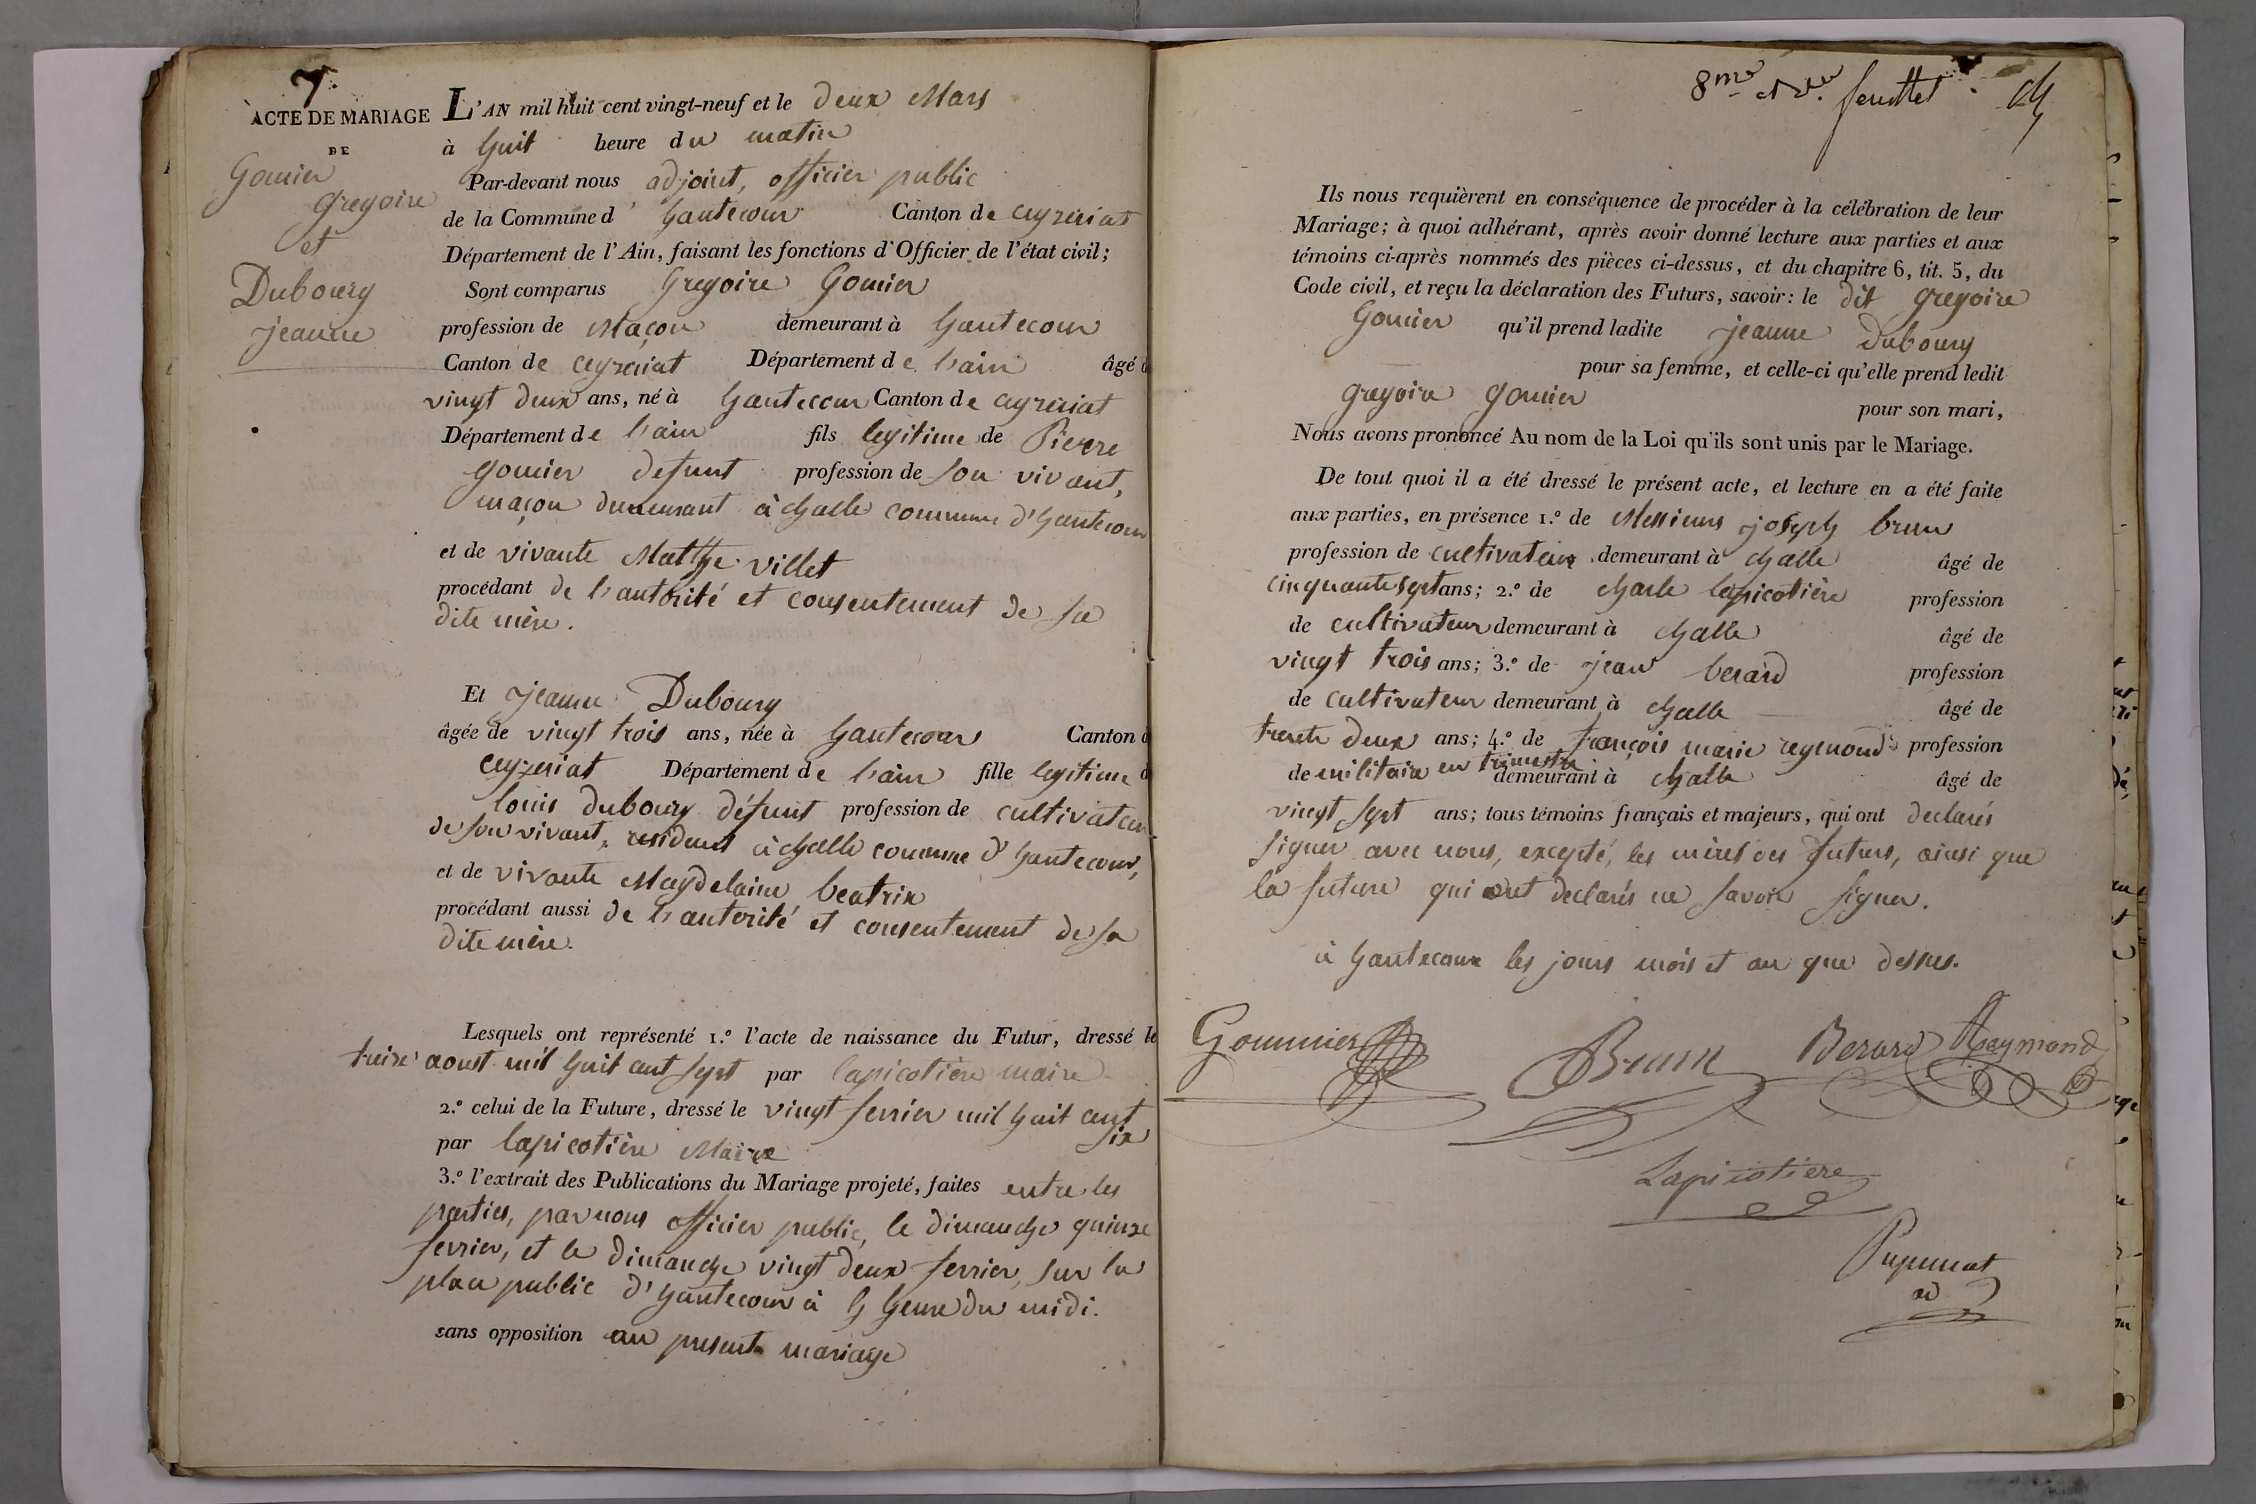 7.
ACTE DE MARIAGE
DE
Gomier
Gregoire
et
Dubourg
jeanne
L'AN mil huit cent vingt-neuf et le deux Mars
à huit heure du matin
Par-devant nous adjoint, officier public
de la Commune d' hautecour Canton de ceyzeriat
Département de l'Ain, faisant les fonctions d'Officier de l'état civil;
Sont comparus Gregoire Gomier
profession de Maçon demeurant à hautecour
Canton de ceyzeriat Département de l'ain âgé d
vingt deux ans, né à hautecour Canton de ceyzeriat
Département de l'ain fils legitime de Pierre
gomier defunt profession de son vivant,
maçon demeurant à challe commune d'hautecour
et de vivante Matthe villet
procédant de l'autorité et consentement de sa
dite mère.
Et jeanne Dubourg
âgée de vingt trois ans, née à hautecour Canton d
ceyzeriat Département de l'ain fille legitime d
louis dubourg défunt profession de cultivateur
de son vivant, residant à challe commune d'hautecour,
et de vivante Magdelaine beatrix
procédant aussi de l'autorité et consentement de sa
dite mère.
Lesquels ont représenté 1.° l'acte de naissance du Futur, dressé le
treize aoust mil huit cent sept par lapicotière maire
2.° celui de la Future, dressé le vingt fevrier mil huit cent
six
par lapicotière Maire
3.° l'extrait des Publications du Mariage projeté, faites entre les
parties, par nous officier public, le dimanche quinze
fevrier, et le dimanche vingt deux fevrier, sur la
place public d'hautecour à heure du midi.
sans opposition au present mariage
8me et feuillet
Ils nous requièrent en conséquence de procéder à la célébration de leur
Mariage; à quoi adhérant, après avoir donné lecture aux parties et aux
témoins ci-après nommés des pièces ci-dessus, et du chapitre 6, tit. 5, du
Code civil, et reçu la déclaration des Futurs, savoir: le dit gregoire
Gomier qu'il prend ladite jeanne Dubourg
pour sa femme, et celle-ci qu'elle prend ledit
gregoire gomier pour son mari,
Nous avons prononcé Au nom de la Loi qu'ils sont unis par le Mariage.
De tout quoi il a été dressé le présent acte, et lecture en a été faite
aux parties, en présence 1.° de Messieurs joseph brun
profession de cultivateur demeurant à challe âgé de
cinquante sept ans; 2.° de charle lapicotière profession
de cultivateur demeurant à challe âgé de
vingt trois ans; 3.° de jean berard profession
de cultivateur demeurant à challe âgé de
trente deux ans; 4.° de françois marie reymond profession
de militaire en trimestre demeurant à challe âgé de
vingt sept ans; tous témoins français et majeurs, qui ont declarés
signer avec nous, excepté, les mères des futurs, ainsi que
la future qui ont declarés ne savoir signer.
à hautecour les jours mois et an que dessus.
Goumier Brun Berard Raymond
Lapicotiere
ad